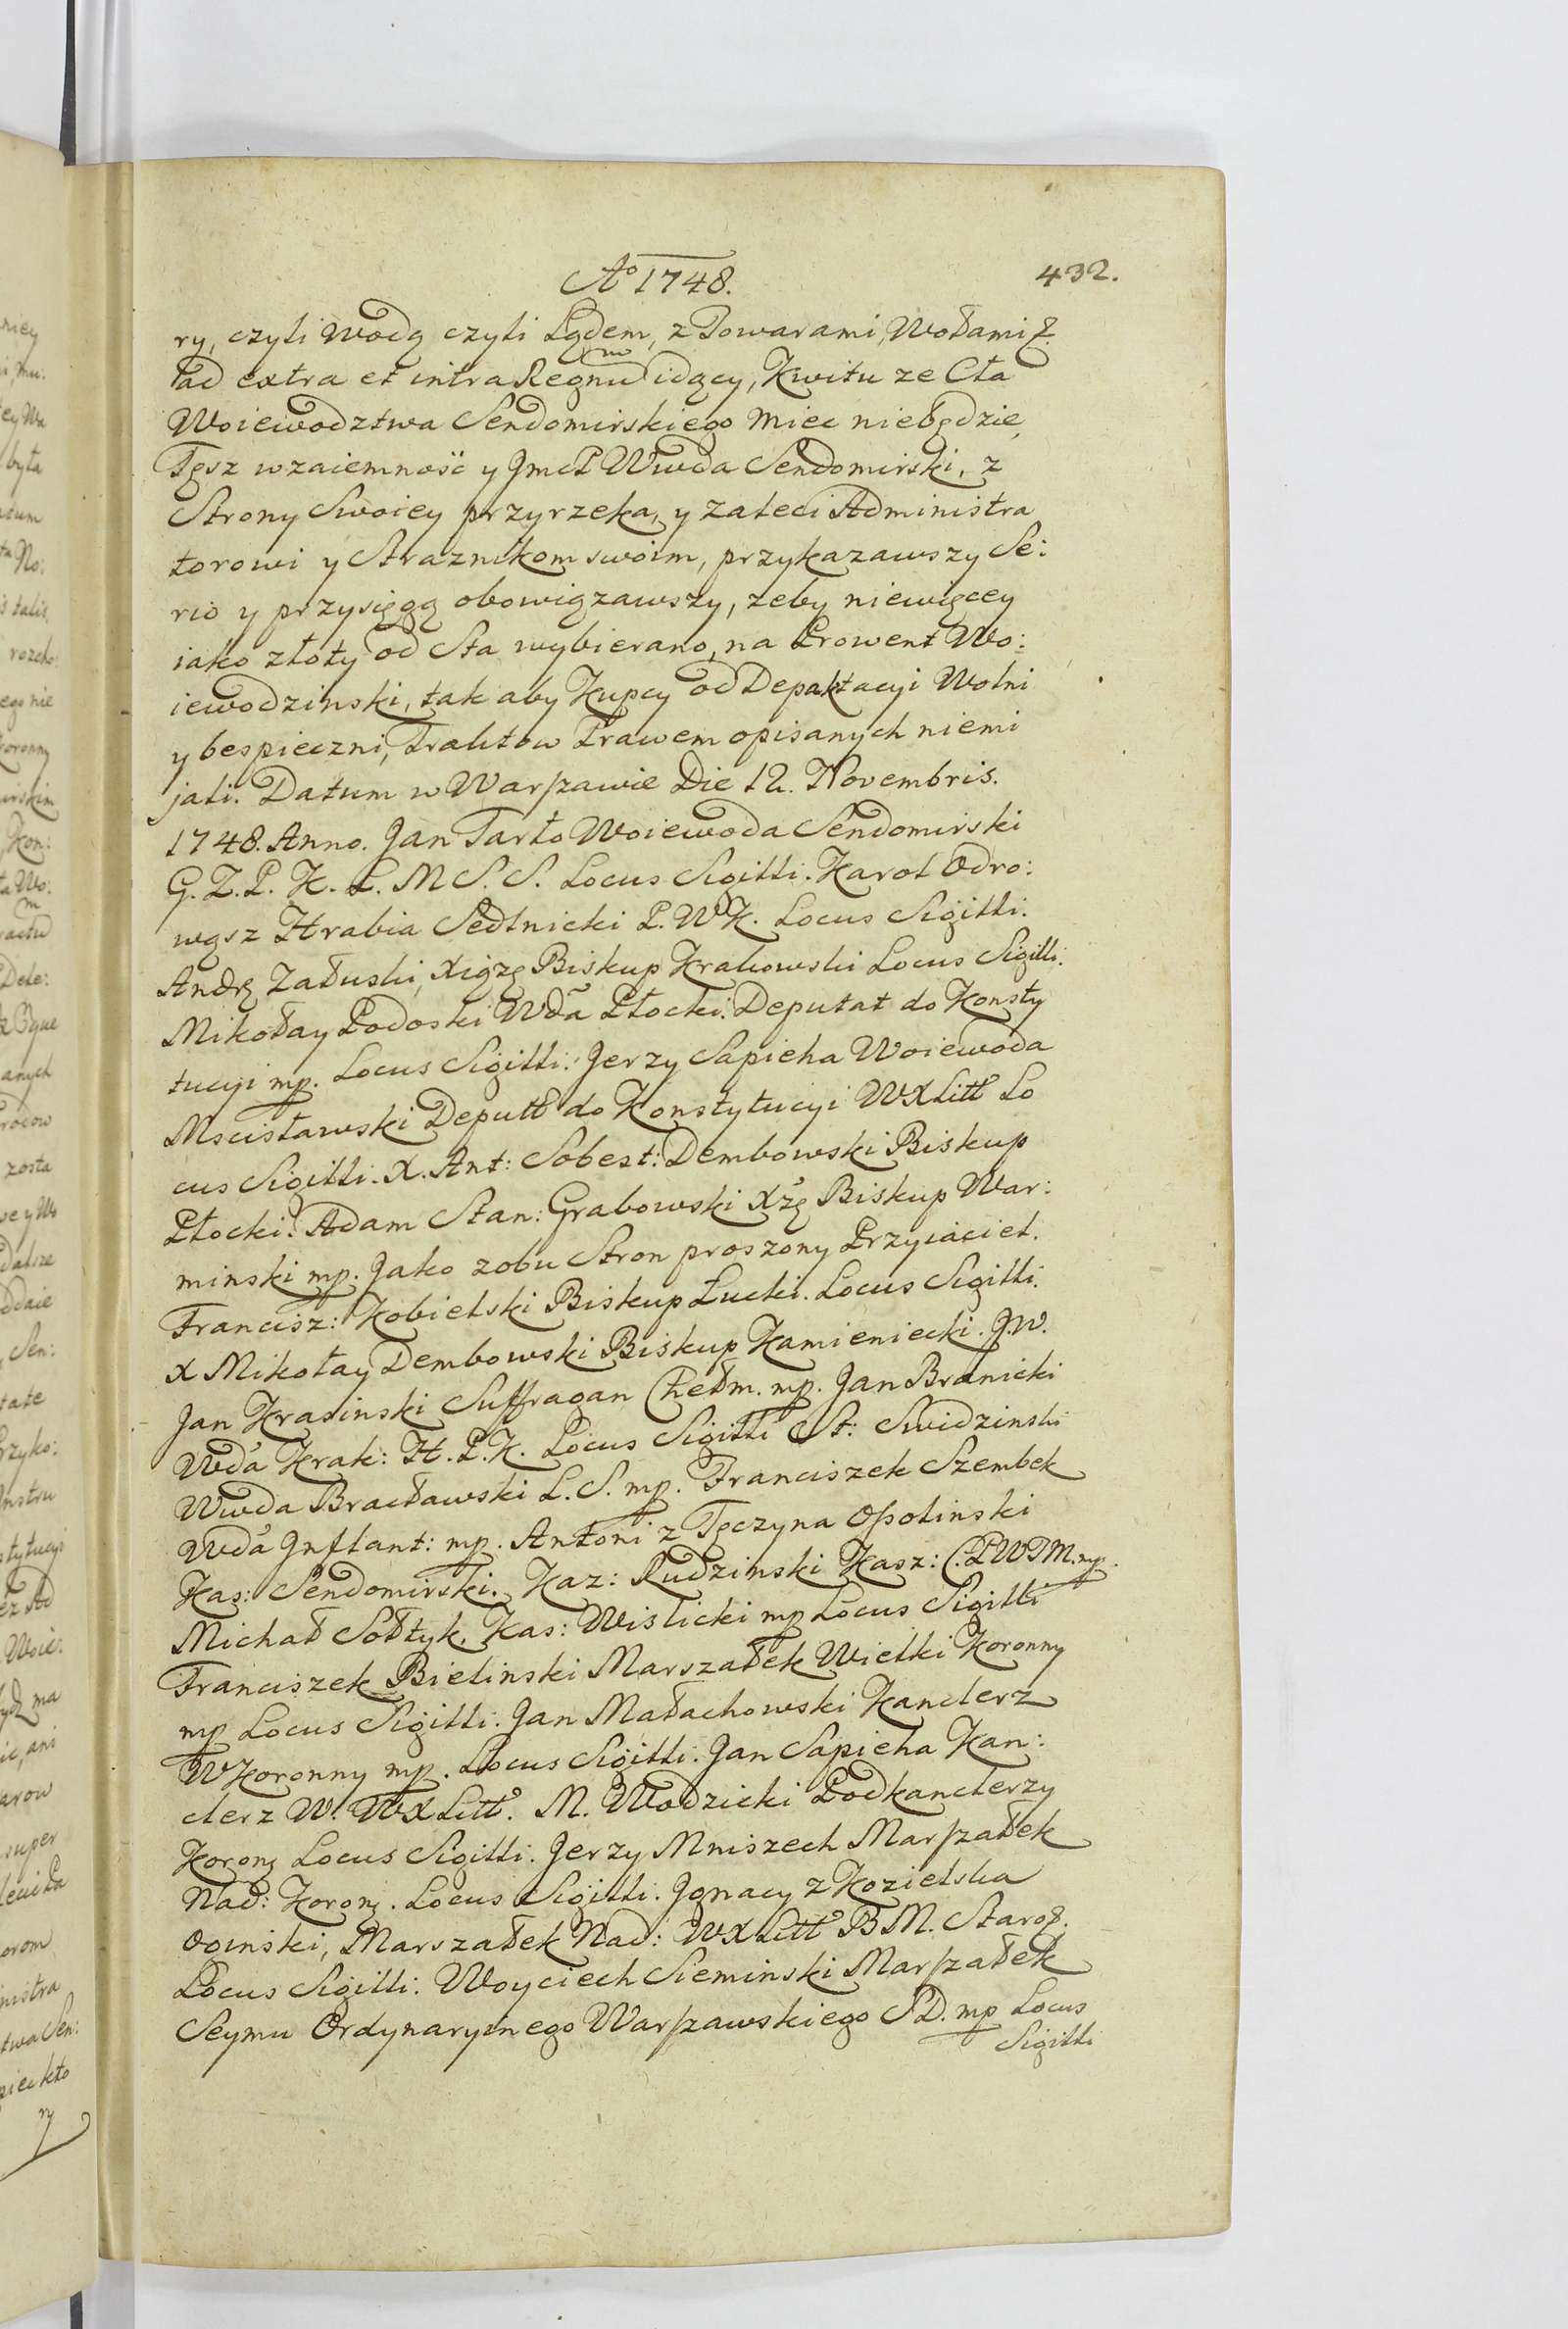 Aº 1748.
432.
ry, czyli Wodą czyli Lądem, z Towarami, Wołami &.
tad extra et intra Regnu(m) idący, Kwitu ze Cła
Woiewodztwa Sendomirskiego Miec niebędzie,
Tęsz wzaiemność y JmcP WWda Sendomirski, z
Strony Swoiey przyrzeka, y zaleci Administra
torowi y Straznikom swoim, przykazawszy Se:
rio y przysięgą obowiązawszy, zeby niewięcey
iako złoty od Sta wybierano, na Prowent Wo:
iewodzinski, tak aby Kupcy od Depaktacyi Wolni
y bespieczni, Traktow Prawem opisanych niemi
jali. Datum w Warszawie Die 12. Novembris.
1748. Anno. Jan Tarło Woiewoda Sendomirski
G. Z. P. K. L. M S. S. Locus Sigilli. Karol Odro:
wąsz Hrabia Sedlnicki P. W K. Locus Sigilli.
Andrz Załuski, Xiążę Biskup Krakowski Locus Sigilli.
Mikołay Podoski Wda Płocki. Deputat do Konsty
tucyi mp. Locus Sigilli: Jerzy Sapieha Woiewoda
Mscisławski Deputt do Konstytucyi WXLitt Lo
cus Sigilli. X. Ant: Sebest: Dembowski Biskup
Płocki. Adam Stan: Grabowski Xżę Biskup War:
minski mp. Jako zobu Stron proszony Przyiaciel.
Francisz: Kobielski Biskup Łucki. Locus Sigilli.
X Mikołay Dembowski Biskup Kamieniecki. J.W.
Jan Krasinski Suffragan Chełm. mp. Jan Branicki
Wda Krak: H. P. K. Locus Sigilli St: Swidzinski
Wwda Bracławski L. S. mp. Franciszek Szembek
Wda Jnflant: mp. Antoni z Tęczyna Ossolinski
Kas: Sendomirski. Kaz: Rudzinski Kasz: C. P W T M. mp.
Michał Sołtyk. Kas: Wislicki mp Locus Sigilli
Franciszek Bielinski Marszałek Wielki Koronny
mp Locus Sigilli. Jan Małachowski Kanclerz
WKoronny mp. Locus Sigilli. Jan Sapieha Kan:
clerz W. WXLitt. M. Wodzicki Podkanclerzy
Koronż Locus Sigilli. Jerzy Mniszech Marszałek
Nad: Koronż. Locus Sigilli. Jgnacy z Kozielska
Oginski, Marszałek Nad: WXLitt B M. Staroż.
Locus Sigilli. Woyciech Sieminski Marszałek
Seymu Ordynaryinego Warszawskiego S D. mp Locus
Sigilli